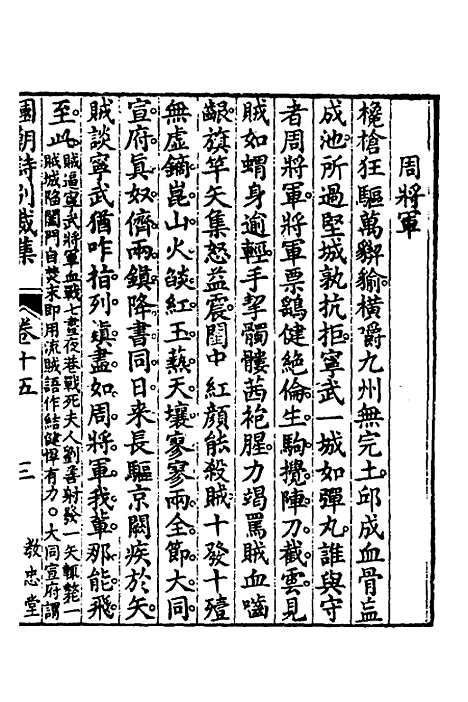 周將軍
欃槍狂驅萬猰貐橫嚼九州無完土邱成血骨盁
成池所過堅城孰抗拒寧武一城如彈丸誰與守
者周將軍將軍票鷂健絶倫生駒攪陣刀截雲見
賊如蝟身逾輕手挈髑髏茜袍腥力竭罵賊血噛
齦旗竿矢集怒益震閨中紅顏能殺賊十發十殪
無虛鏑崑山火燄紅玉爇天壤寥寥兩全節大同
宣府眞奴儕兩鎮降書同日來長驅京闕疾於矢
賊談寧武猶咋指列鎮盡如周將軍我輩那能飛
至此賊逼寧武將軍血戰七晝夜巷戰死夫人劉善射發一矢輒斃一
賊城陷闔門自焚末即用流賊語作結健悍有力○大同宣府謂
國朝詩别裁集 卷十五 三 教忠堂